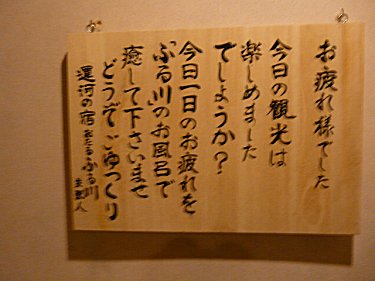 お疲れ様でした
今日の観光は
楽しめました
でしょうか？
今日一日のお疲れを
「ふる川」のお風呂で
癒して下さいませ
どうぞごゆっくり
運河の宿 おたるふる川
支配人